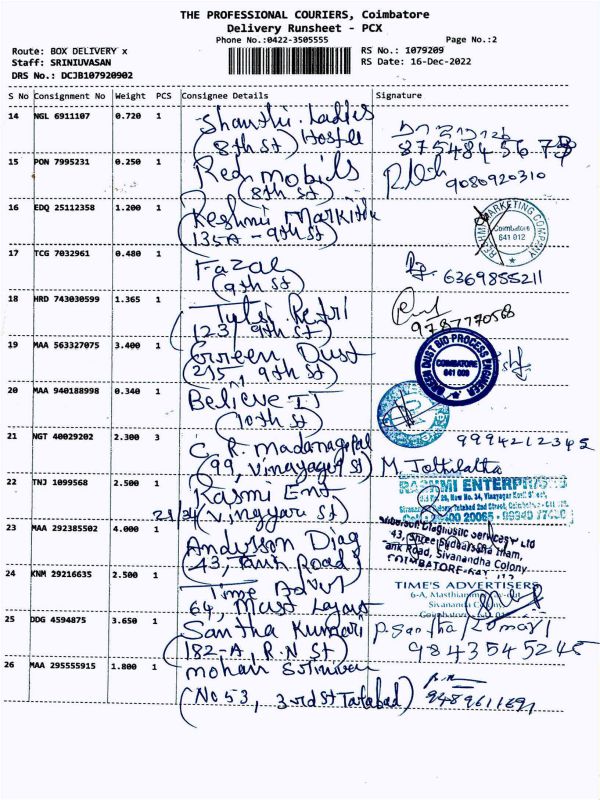 THE PROFESSIONAL COURIERS, Coimbatore
Delivery Runsheet - PCX
Phone No.:0422-3505555 Page No.:2
Route: BOX DELIVERY x RS No.: 1079209
Staff: SRINIUVASAN RS Date: 16-Dec-2022
DRS No.: DCJB107920902
S No Consignment No Weight PCS Consignee Details Signature
14 NGL 6911107 0.720 1 Shanthi Ladies
(8th St) Hostel
15 PON 7995231 0.250 1 Red mobils
(8th St) 9080920310
16 EDQ 25112358 1.200 1 Reshmi Marketing
(135A - 9th St) MARKETING COMPANY Coimbatore 641 012
17 TCG 7032961 0.480 1 Fazal
(9th St) 6369855211
18 HRD 743030599 1.365 1
(123, 9th St) 9787770568
19 MAA 563327075 3.400 1 Green Dust
(215 9th St) GREEN DUST BIO-PROCESS ENGINEER COIMBATORE
20 MAA 940188998 0.340 1 Believe IT
(10th St)
21 NGT 40029202 2.300 3 C. R. Madanagopal 9994212345
(99, Vinayager St) M. Jothilatha
22 TNJ 1099568 2.500 1 Rasmi Ent RASHMI ENTERPRISES
23 MAA 292385502 4.000 1 Andersson Diag Diagnostic Services
(43, Tank Road) 43, Shree Sudharsana Illam,
Tank Road, Sivanandha Colony
24 KNM 29216635 2.500 1 Time Advt TIME'S ADVERTISERS
64, Mast Layout Sivananda Colony
25 DDG 4594875 3.650 1 Santha Kumari P. Santha Kumari
(182-A, R.N St) 9843545245
26 MAA 295555915 1.800 1 Mohan Srinivas
(No 53, 3rd St Tatabad)